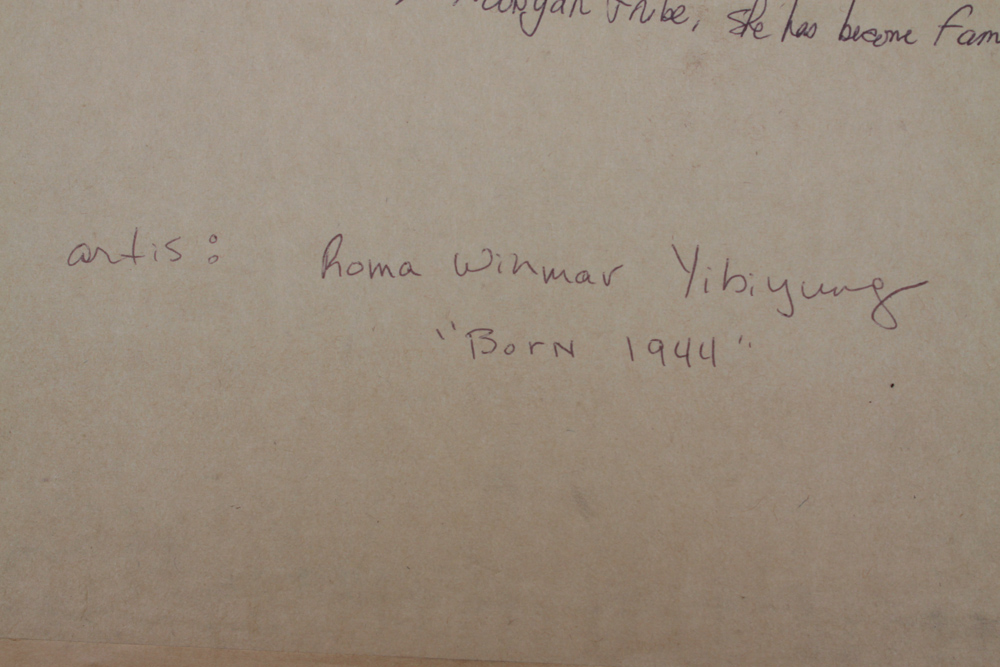 tribe, she has become fam
artis: Roma Winmar Yibiyung
"Born 1944"